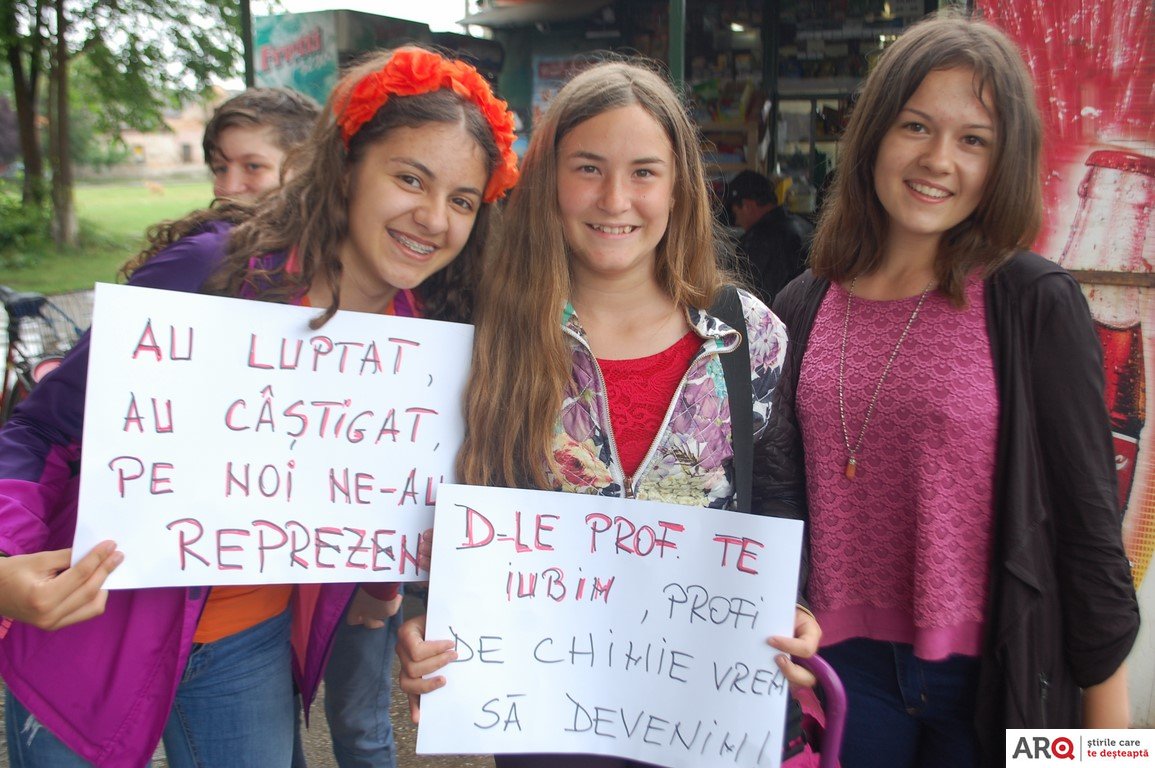 Fresh
AU LUPTAT,
AU CÂȘTIGAT,
PE NOI NE-AU
REPREZEN
D-LE PROF. TE
IUBIM, PROFI
DE CHIMIE VREM
SĂ DEVENIM!
ARQ știrile care
te deșteaptă